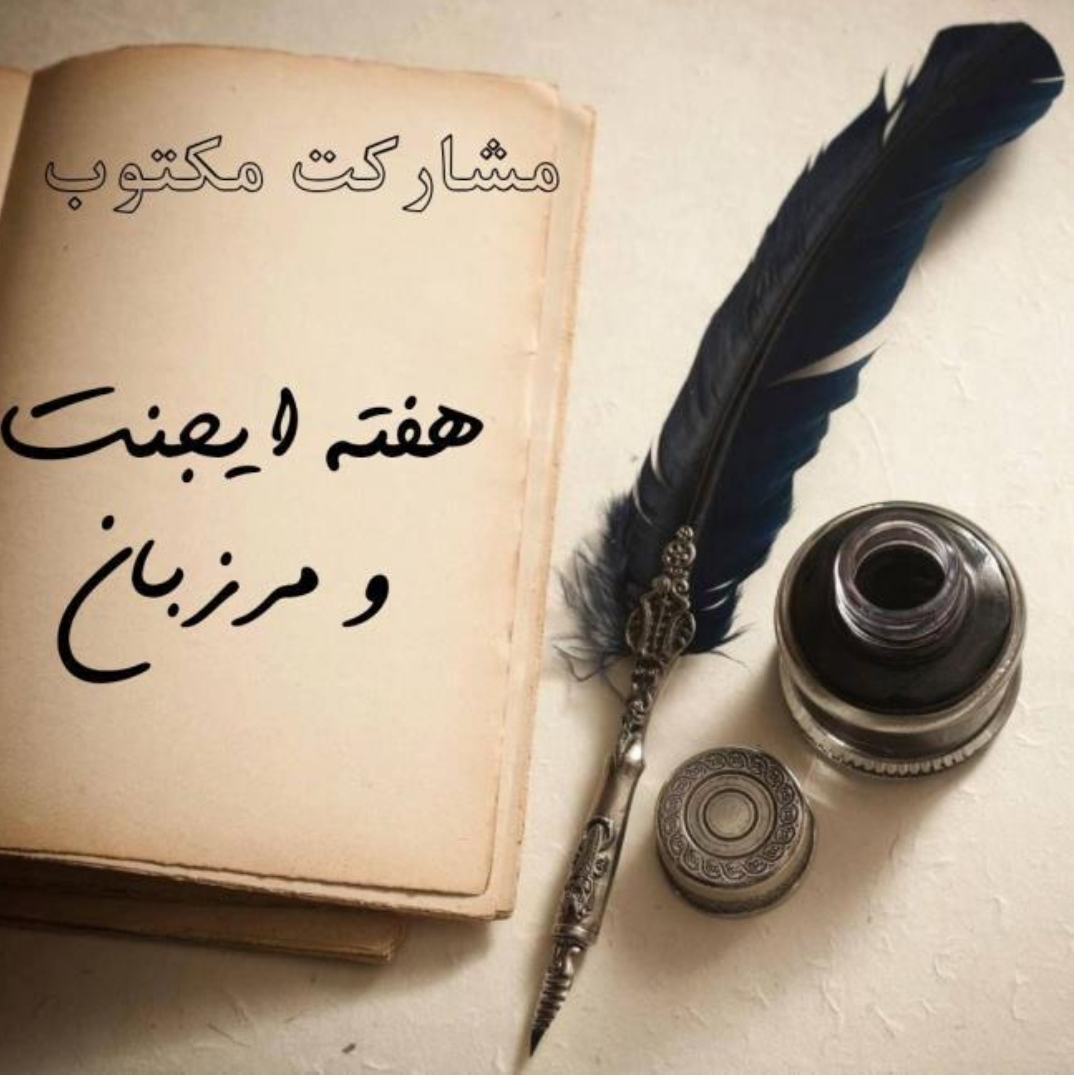 مشارکت مکتوب
هفته ایجنت
و مرزبان